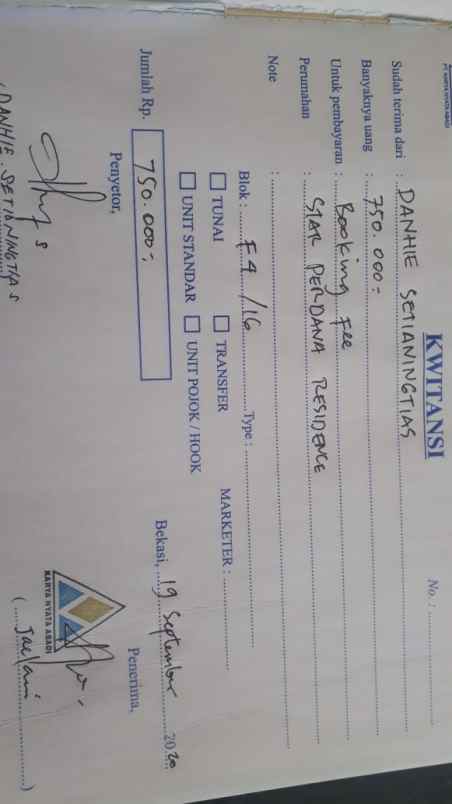 KWITANSI
No. :
Sudah terima dari : DANHIE SETIANINGTIAS
Banyaknya uang : 750.000:
Untuk pembayaran : Booking Fee
Perumahan : STAR PERDANA RESIDENCE
Note :
Blok : F4/16 Type :
TUNAI TRANSFER MARKETER :
UNIT STANDAR UNIT POJOK / HOOK
Bekasi, 19 September 2020
Jumlah Rp. 750.000:
Penyetor, Penerima,
KARYA NYATA ABADI
(DANHIE. SETIANINGTIAS (Jaelani)